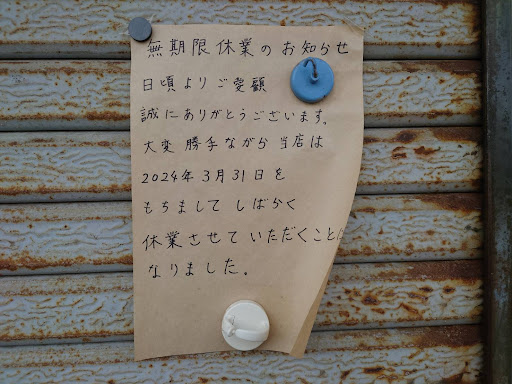 無期限休業のお知らせ
日頃よりご愛顧
誠にありがとうございます。
大変勝手ながら当店は
2024年3月31日を
もちまして しばらく
休業させていただくことに
なりました。